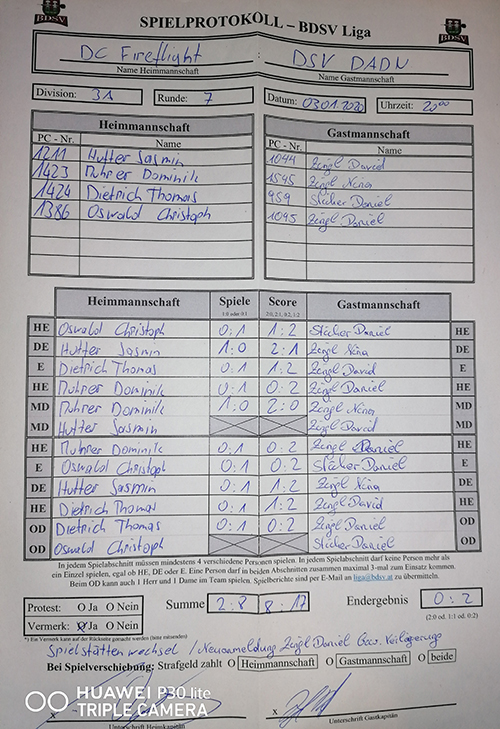 BDSV
SPIELPROTOKOLL – BDSV Liga
BDSV
DC Fireflight
DSV DADN
Name Heimmannschaft
Name Gastmannschaft
Division: 3A Runde: 7 Datum: 03.01.2020 Uhrzeit: 20:00
Heimmannschaft
Gastmannschaft
PC - Nr. Name
PC - Nr. Name
1211 Hutter Jasmin
1044 Zingl David
1423 Muhrer Dominik
1595 Zingl Nina
1424 Dietrich Thomas
959 Sticher Daniel
1386 Oswald Christoph
1095 Zingl Daniel
Heimmannschaft Spiele Score Gastmannschaft
1:0 oder 0:1 2:0, 2:1, 0:2, 1:2
HE Oswald Christoph 0:1 1:2 Sticher Daniel HE
DE Hutter Jasmin 1:0 2:1 Zingl Nina DE
E Dietrich Thomas 0:1 1:2 Zingl David E
HE Muhrer Dominik 0:1 0:2 Zingl Daniel HE
MD Muhrer Dominik 1:0 2:0 Zingl Nina MD
MD Hutter Jasmin Zingl David MD
HE Muhrer Dominik 0:1 0:2 Zingl Daniel HE
E Oswald Christoph 0:1 0:2 Sticher Daniel E
DE Hutter Jasmin 0:1 1:2 Zingl Nina DE
HE Dietrich Thomas 0:1 1:2 Zingl David HE
OD Dietrich Thomas 0:1 0:2 Zingl Daniel OD
OD Oswald Christoph Sticher Daniel OD
In jedem Spielabschnitt müssen mindestens 4 verschiedene Personen spielen. In jedem Spielabschnitt darf keine Person mehr als
ein Einzel spielen, egal ob HE, DE oder E. Eine Person darf in beiden Abschnitten zusammen maximal 3-mal zum Einsatz kommen.
Beim OD kann auch 1 Herr und 1 Dame im Team spielen. Spielberichte sind per E-Mail an liga@bdsv.at zu übermitteln.
Protest: O Ja O Nein
Summe 2:8 8:17 Endergebnis 0:2
Vermerk: O Ja O Nein
(2:0 od. 1:1 od. 0:2)
*) Ein Vermerk kann auf der Rückseite gemacht werden (bitte ankreuzen)
Spielstättenwechsel / Neuanmeldung Zingl Daniel bzw. Verlängerung
Bei Spielverschiebung: Strafgeld zahlt O Heimmannschaft O Gastmannschaft O beide
HUAWEI P30 lite
TRIPLE CAMERA
x
x
Unterschrift Heimkapitän
Unterschrift Gastkapitän